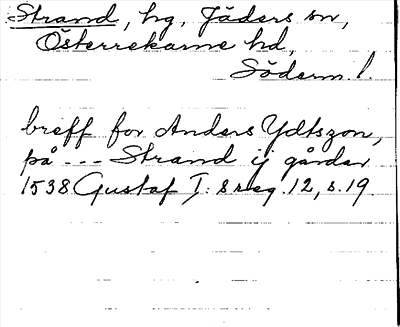 Strand, hg, Jäders sn,
Österrekarne hd,
Söderm l.
breff for Anders Ydtszon,
på --- Strand ij gårdar
1538 Gustaf I: s reg. 12, s. 19.